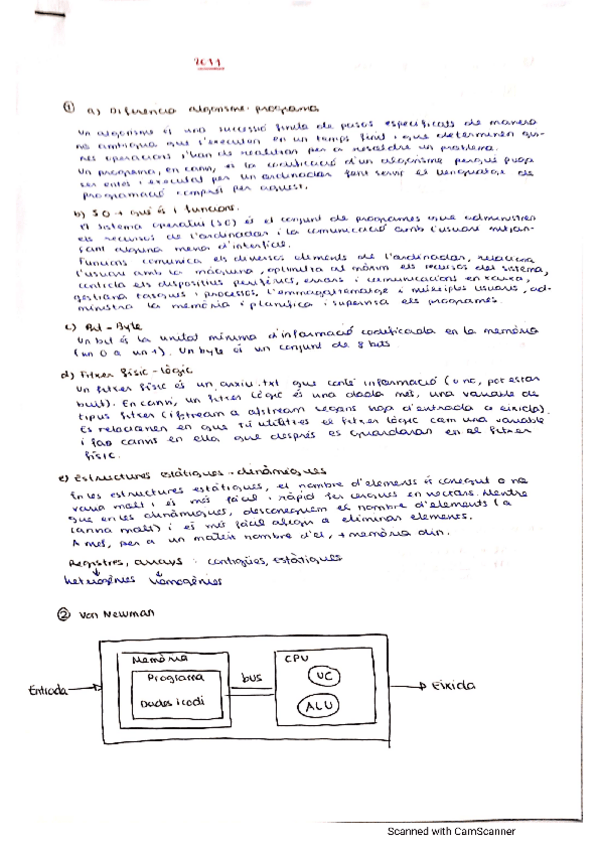 2011
① a) Diferència algorisme-programa
Un algorisme és una successió finita de passos especificats de manera
no ambigua que s'executen en un temps finit i que determinen qui-
nes operacions s'han de realitzar per a resoldre un problema.
Un programa, en canvi, és la codificació d'un algorisme perquè pugui
ser entès i executat per un ordinador fent servir el llenguatge de
programació comprès per aquest.
b) SO → què és i funcions.
El sistema operatiu (SO) és el conjunt de programes que administren
els recursos de l'ordinador i la comunicació amb l'usuari mitjan-
çant alguna mena d'interfície.
Funcions: comunica els diversos elements de l'ordinador, relaciona
l'usuari amb la màquina, optimitza al màxim els recursos del sistema,
controla els dispositius perifèrics, errors i comunicacions en xarxa,
gestiona tasques i processos, l'emmagatzematge i múltiples usuaris, ad-
ministra la memòria i planifica i supervisa els programes.
c) Bit - Byte
Un bit és la unitat mínima d'informació codificada en la memòria
(un 0 o un 1). Un byte és un conjunt de 8 bits.
d) Fitxer físic - lògic
Un fitxer físic és un arxiu .txt que conté informació (o no, pot estar
buit). En canvi, un fitxer lògic és una dada més, una variable de
tipus fitxer (ifstream o ofstream segons sigui d'entrada o eixida).
Es relacionen en que tu utilitzes el fitxer lògic com una variable
i fas canvis en ella que després es guardaran en el fitxer
físic.
e) Estructures estàtiques - dinàmiques
En les estructures estàtiques, el nombre d'elements és conegut o no
varia molt i és més fàcil i ràpid fer cerques en vectors. Mentre
que en les dinàmiques, desconeguem el nombre d'elements (o
canvia molt) i és més fàcil afegir o eliminar elements.
A més, per a un mateix nombre d'el, + memòria din.
Registres, arrays: contigües, estàtiques
heterogènies homogènies
② Von Newman
Memòria CPU
Programa UC
Entrada bus Eixida
Dades i codi ALU
Scanned with CamScanner